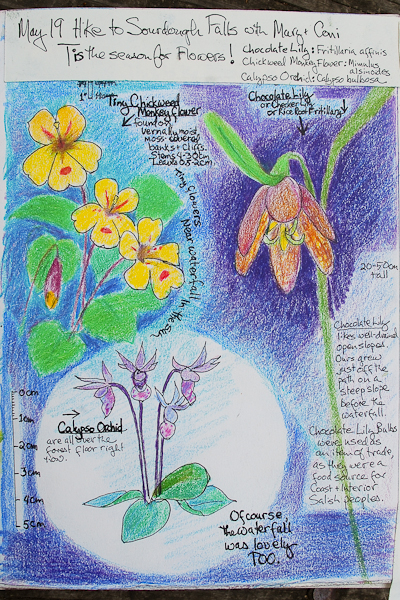 May 19 Hike to Sourdough Falls with Mary + Ceni
'Tis the season for Flowers!
Chocolate Lily: Fritillaria affinis
Chickweed Monkey Flower: Mimulus
alsinodes
Calypso Orchid: Calypso bulbosa
Tiny Chickweed
Monkey Flower
found on
vernaly moist
moss-covered
banks + Cliffs.
Stems 4-30cm
Leaves 0.5-2cm
Chocolate Lily
or Checker Lily
or Rice Root Fritillary
Tiny flowers
Near waterfall in the sun
20-50cm
tall
Chocolate Lily
likes well-drained
open slopes.
Ours grew
just off the
path on a
steep slope
before the
waterfall.
Chocolate Lily Bulbs
were used as
an item of trade,
as they were a
food source for
Coast + Interior
Salish peoples.
0cm
1cm
2cm
3cm
4cm
5cm
Calypso Orchid
are all over the
forest floor right
now.
Of course,
the waterfall
was lovely
TOO.